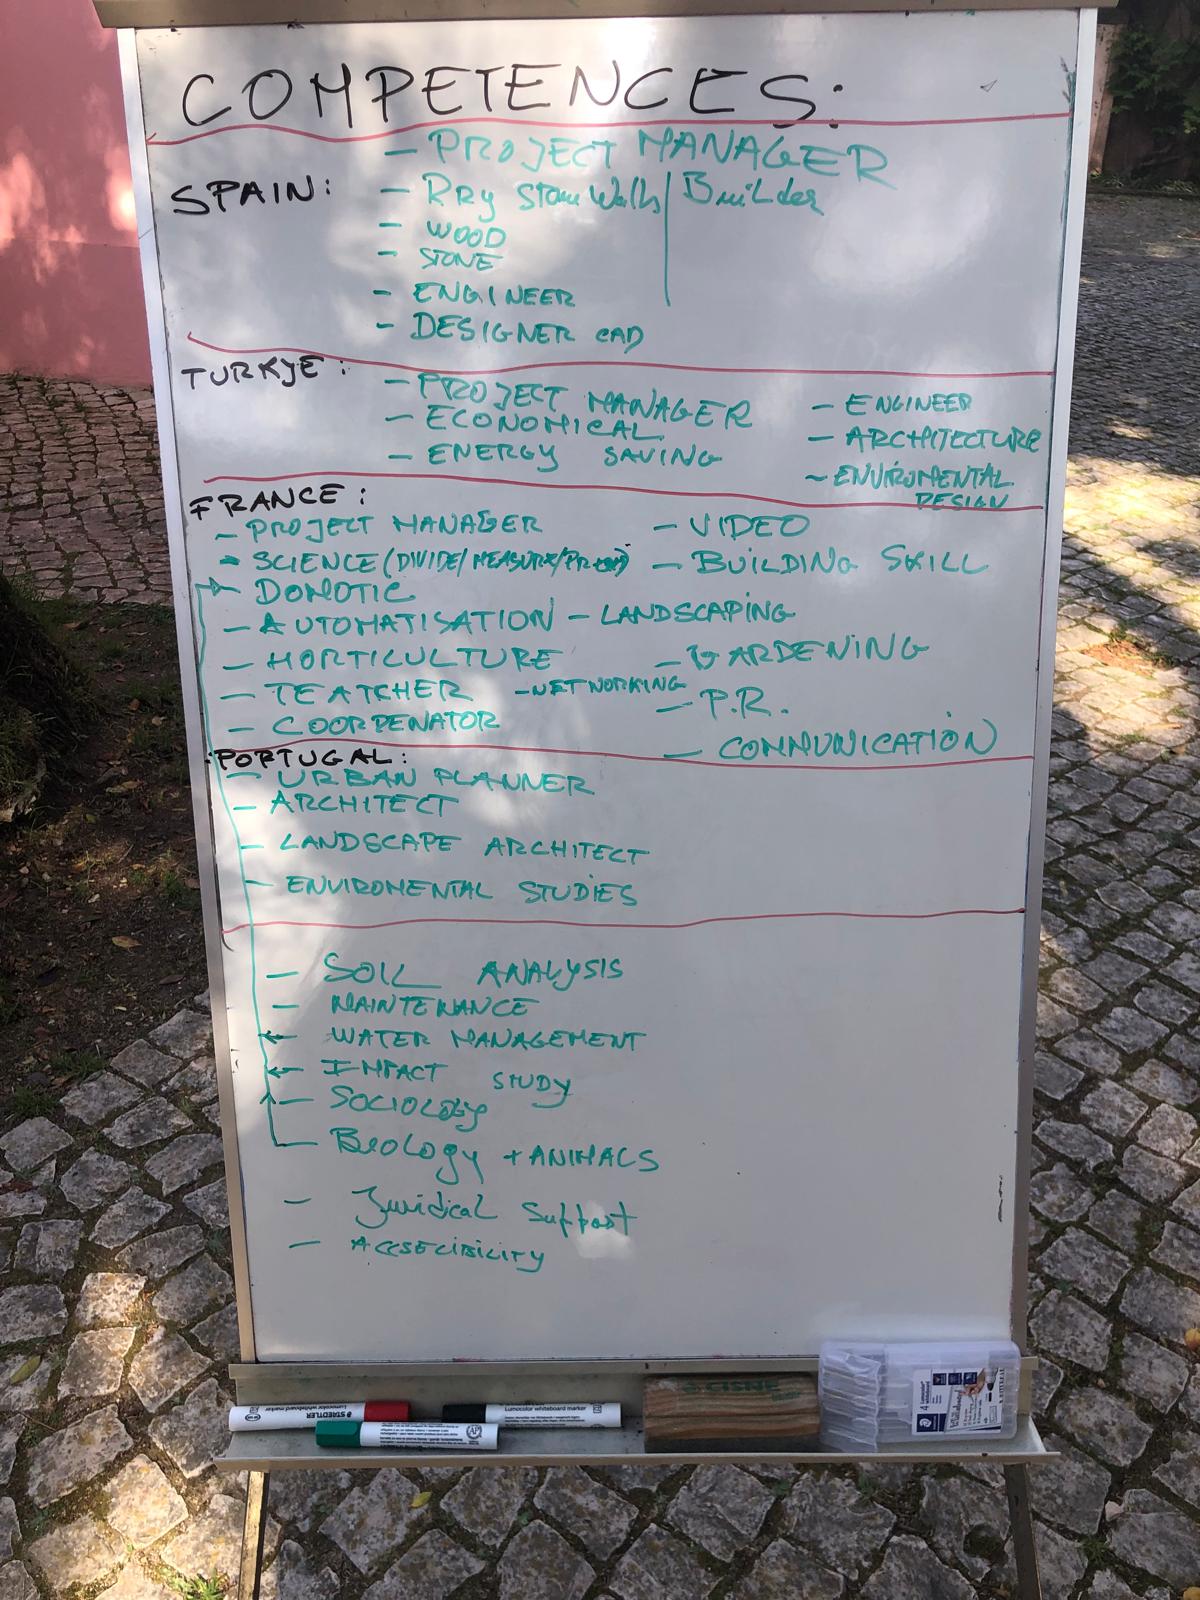 COMPETENCES:
- PROJECT MANAGER
SPAIN:
- Rry Stone Walls | Builder
- WOOD
- STONE
- ENGINEER
- DESIGNER CAD
TURKYE:
- PROJECT MANAGER
- ECONOMICAL
- ENERGY SAVING
- ENGINEER
- ARCHITECTURE
- ENVIROMENTAL
DESIGN
FRANCE:
- PROJECT MANAGER
- SCIENCE (DIVIDE/MEASURE/
DOMOTIC
- AUTOMATISATION - LANDSCAPING
- HORTICULTURE
- TEATCHER - NETWORKING
- COORDENATOR
- VIDEO
- BUILDING SKILL
- GARDENING
- P.R.
- COMMUNICATION
PORTUGAL:
- URBAN PLANNER
- ARCHITECT
- LANDSCAPE ARCHITECT
- ENVIROMENTAL STUDIES
- SOIL ANALYSIS
- MAINTENANCE
WATER MANAGEMENT
IMPACT STUDY
- SOCIOLOGY
BIOLOGY + ANIMALS
- Juridical Support
- ACCSECIBILITY
STAEDTLER
Lumocolor whiteboard marker
Lumocolor whiteboard marker
CISNE